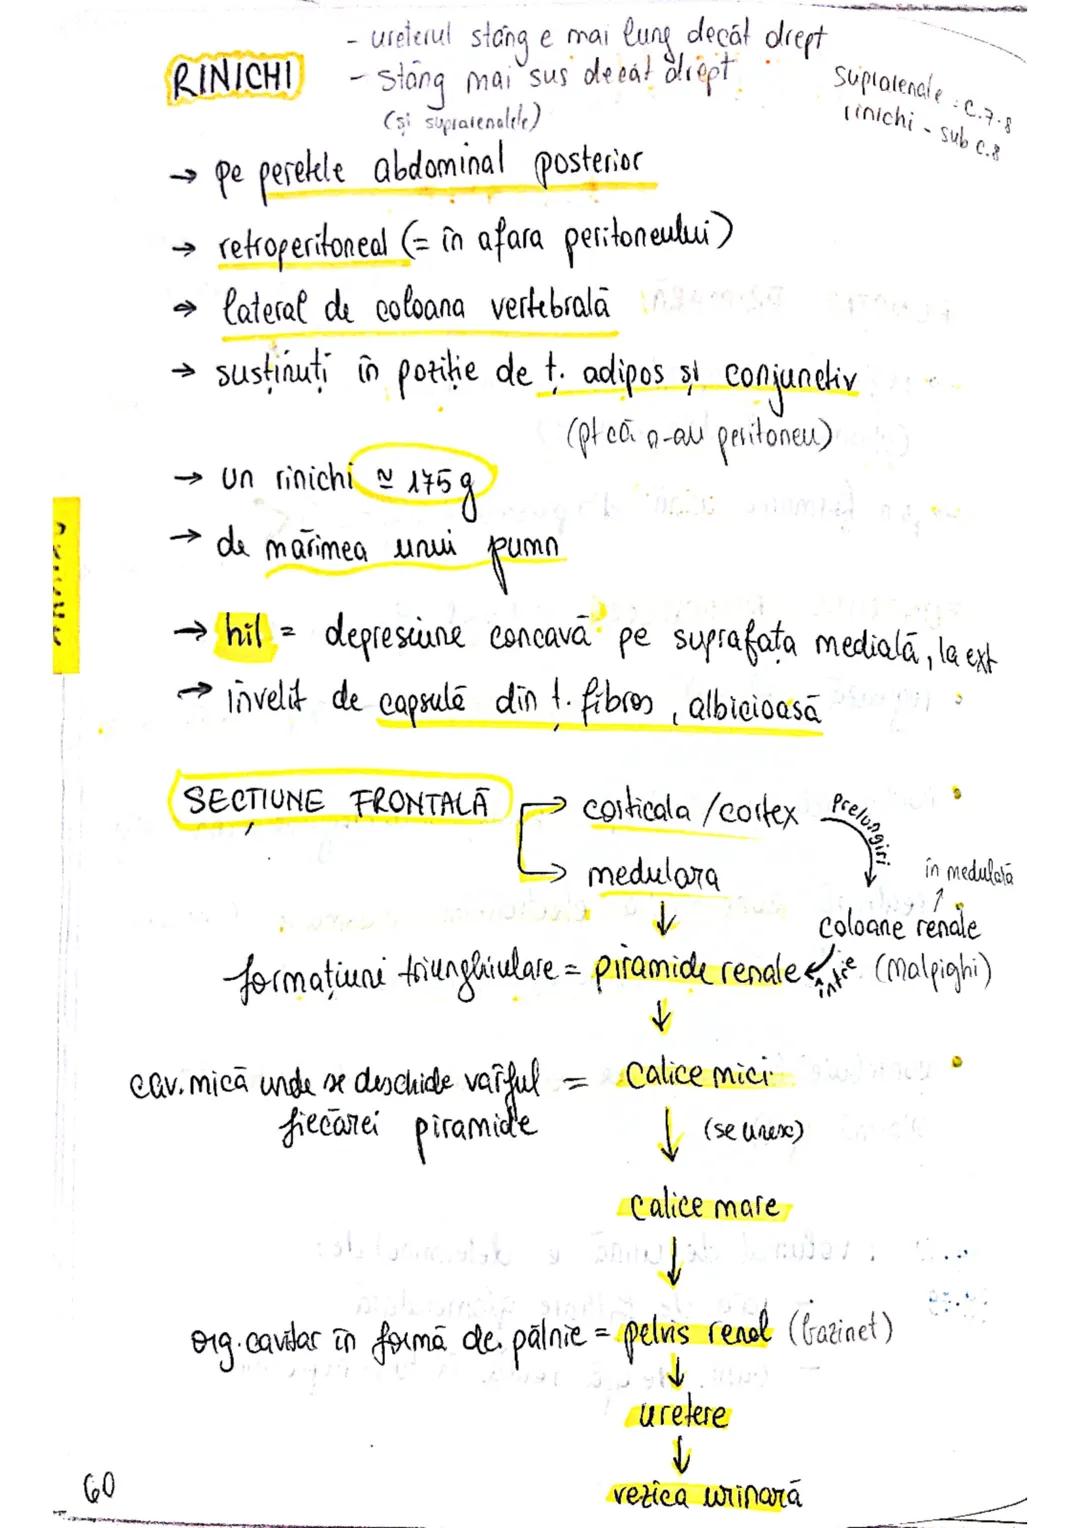 - ureterul stâng e mai lung decât drept
RINICHI
- stâng mai sus decât drept
(și suprarenalele)
Suprarenale : C.7-8
rinichi - sub C.8
→ pe peretele abdominal posterior
→ retroperitoneal (= în afara peritoneului)
→ lateral de coloana vertebrală
→ susținuți în poziție de ț. adipos și conjunctiv
(pt că n-au peritoneu)
→ un rinichi ≃ 175 g
→ de mărimea unui pumn
→ hil = depresiune concavă pe suprafața medială, la ext
→ învelit de capsulă din ț. fibros, albicioasă
SECȚIUNE FRONTALĂ
→ corticala / cortex
prelungiri
→ medulara
în medulară
↑
coloane renale
↓
formațiuni triunghiulare = piramide renale
între
(Malpighi)
↓
cav. mică unde se deschide vârful = calice mici
fiecărei piramide
↓ (se unesc)
calice mare
↓
org. cavitar în formă de pâlnie = pelvis renal (bazinet)
↓
uretere
↓
60
vezica urinară